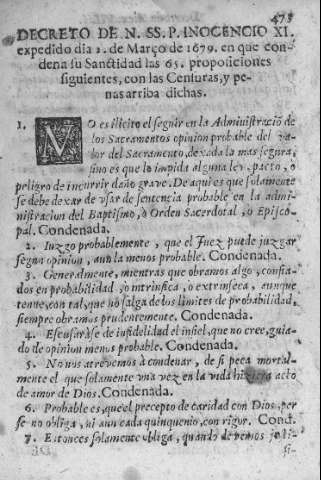 475
DECRETO DE N. SS. P. INOCENCIO XI.
expedido dia 2. de Março de 1679. en que con-
dena su Sanctidad las 65. proposiciones
siguientes, con las Censuras, y pe-
nas arriba dichas.
1. NO es ilicito el seguir en la Administraciõ de
los Sacramentos opinion probable del va-
lor del Sacramento, dexada la mas segura,
sino es que lo impida alguna ley, pacto, o
peligro de incurrir daño grave. De aqui es que solamente
se debe dexar de vsar de sentencia probable en la admi-
nistracion del Baptismo, ò Orden Sacerdotal, ò Episco-
pal. Condenada.
2. Iuzgo probablemente, que el Juez puede juzgar
segun opinion, aun la menos probable. Condenada.
3. Generalmente, mientras que obramos algo, confia-
dos en probabilidad, ò intrinsica, ò extrinseca, aunque
tenue, con tal, que no salga de los limites de probabilidad,
siempre obramos prudentemente. Condenada.
4. Escusaràse de infidelidad el infiel, que no cree, guia-
do de opinion menos probable. Condenada.
5. No nos atrevemos à condenar, de si peca mortal-
mente el que solamente vna vez en la vida acto
de amor de Dios. Condenada.
6. Probable es, que el precepto de caridad con Dios, per
se no obliga, ni aun cada quinquenio, con rigor. Cond.
7. Entonces solamente obliga, quando devemos justi-
fi-